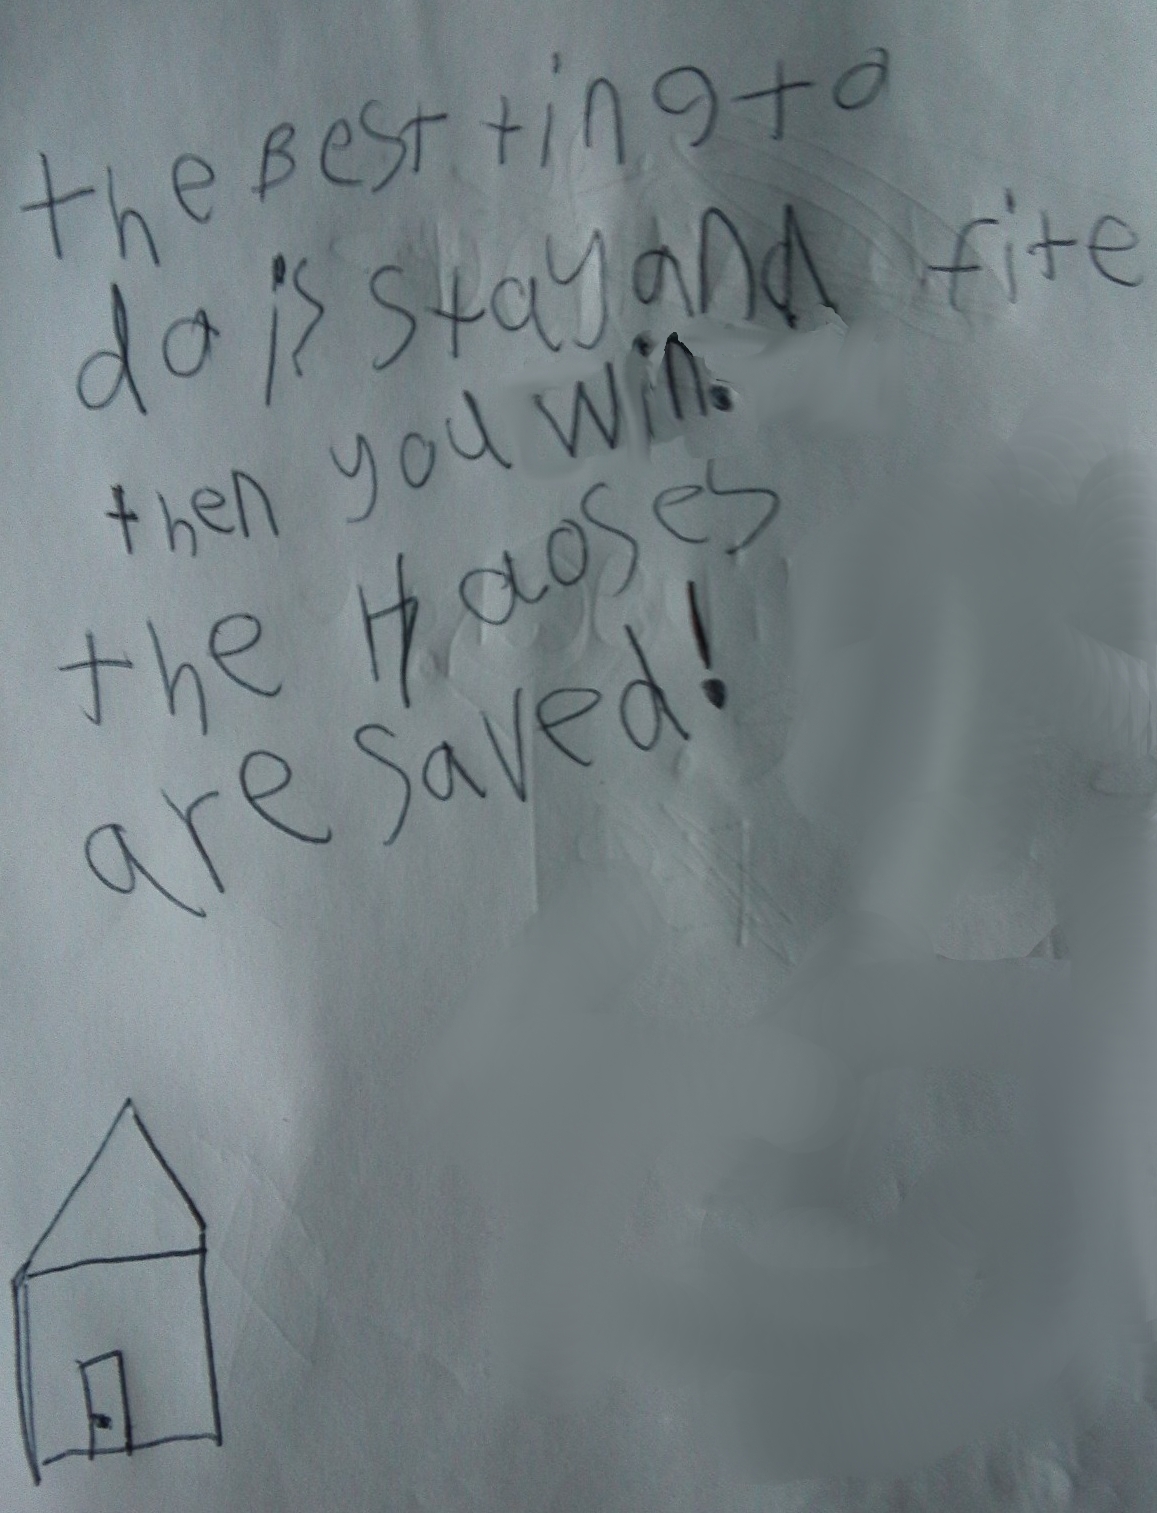 the Best ting to
do is stay and fite
then you win.
the Haoses
are saved!